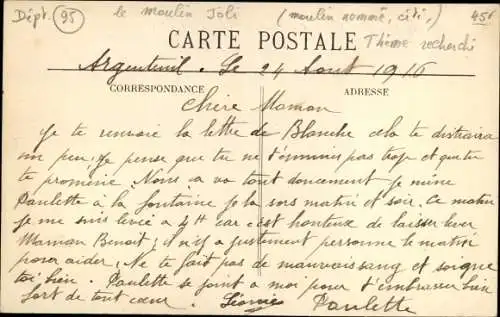 Dépt. 95 le moulin Joli (moulin nommé, cité,) 45f
CARTE POSTALE Thème recherché
Argenteuil. Le 24 Aout 1916
CORRESPONDANCE ADRESSE
Chère Maman
Je te renvoie la lettre de Blanche cela te distraira
un peu, je pense que tu ne t'ennuis pas trop et que tu
te promène. Nous ca va tout doucement je mène
Paulette à la fontaine je la sors matin et soir. Ce matin
je me suis levée a 4H car c'est honteux de laisser lever
Maman Benoit; il n'y a justement personne le matin
pour aider. Ne te fait pas de mauvais sang et soigne
toi bien. Paulette se joint a moi pour t'embrasser bien
fort de tout cœur. Léonie Paulette